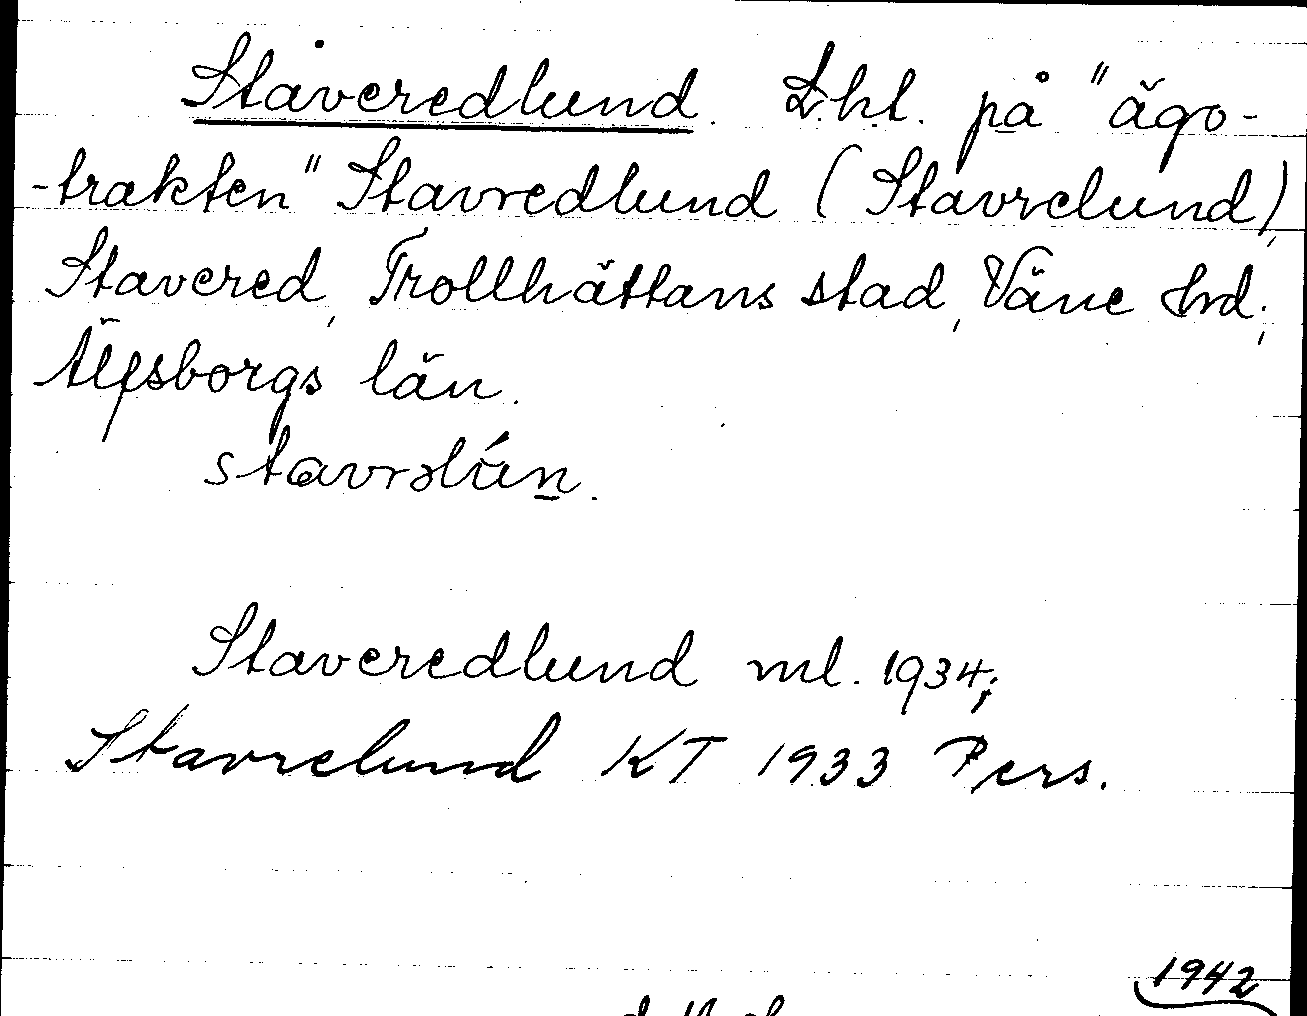 Staveredlund. Lht. på "ägo-
-trakten" Stavredlund (Stavrelund),
Stavered, Trollhättans stad, Väne hrd.,
Älfsborgs län.
stavrəlún.
Staveredlund ml. 1934;
Stavrelund KT 1933 Pers.
1942